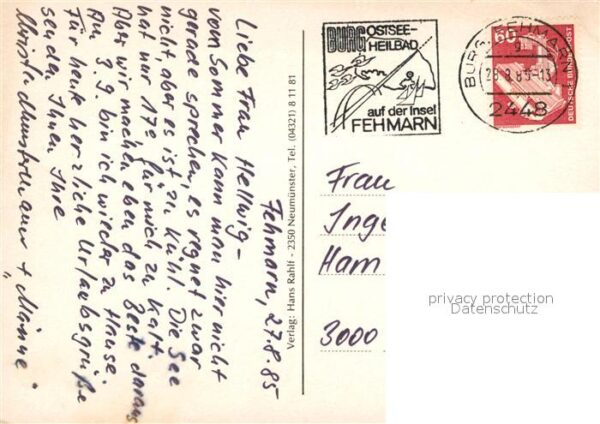 Fehmarn, 27.8.85
Liebe Frau Hellwig –
vom Sommer kann man hier nicht
gerade sprechen, es regnet zwar
nicht, aber es ist zu kühl. Die See
hat nur 17° für mich zu kalt.
Aber wir machen eben das Beste daraus
Am 3.9. bin ich wieder zu Hause.
Für heute herzliche Urlaubsgrüße
senden Ihnen Ihre
Christa + "Männe"
Verlag: Hans Rahlf - 2350 Neumünster, Tel. (04321) 8 11 81
BURG OSTSEE-
HEILBAD
auf der Insel
FEHMARN
BURG, FEHMARN
2448
60
DEUTSCHE BUNDESPOST
Frau
Inge
Ham
3000
privacy protection
Datenschutz